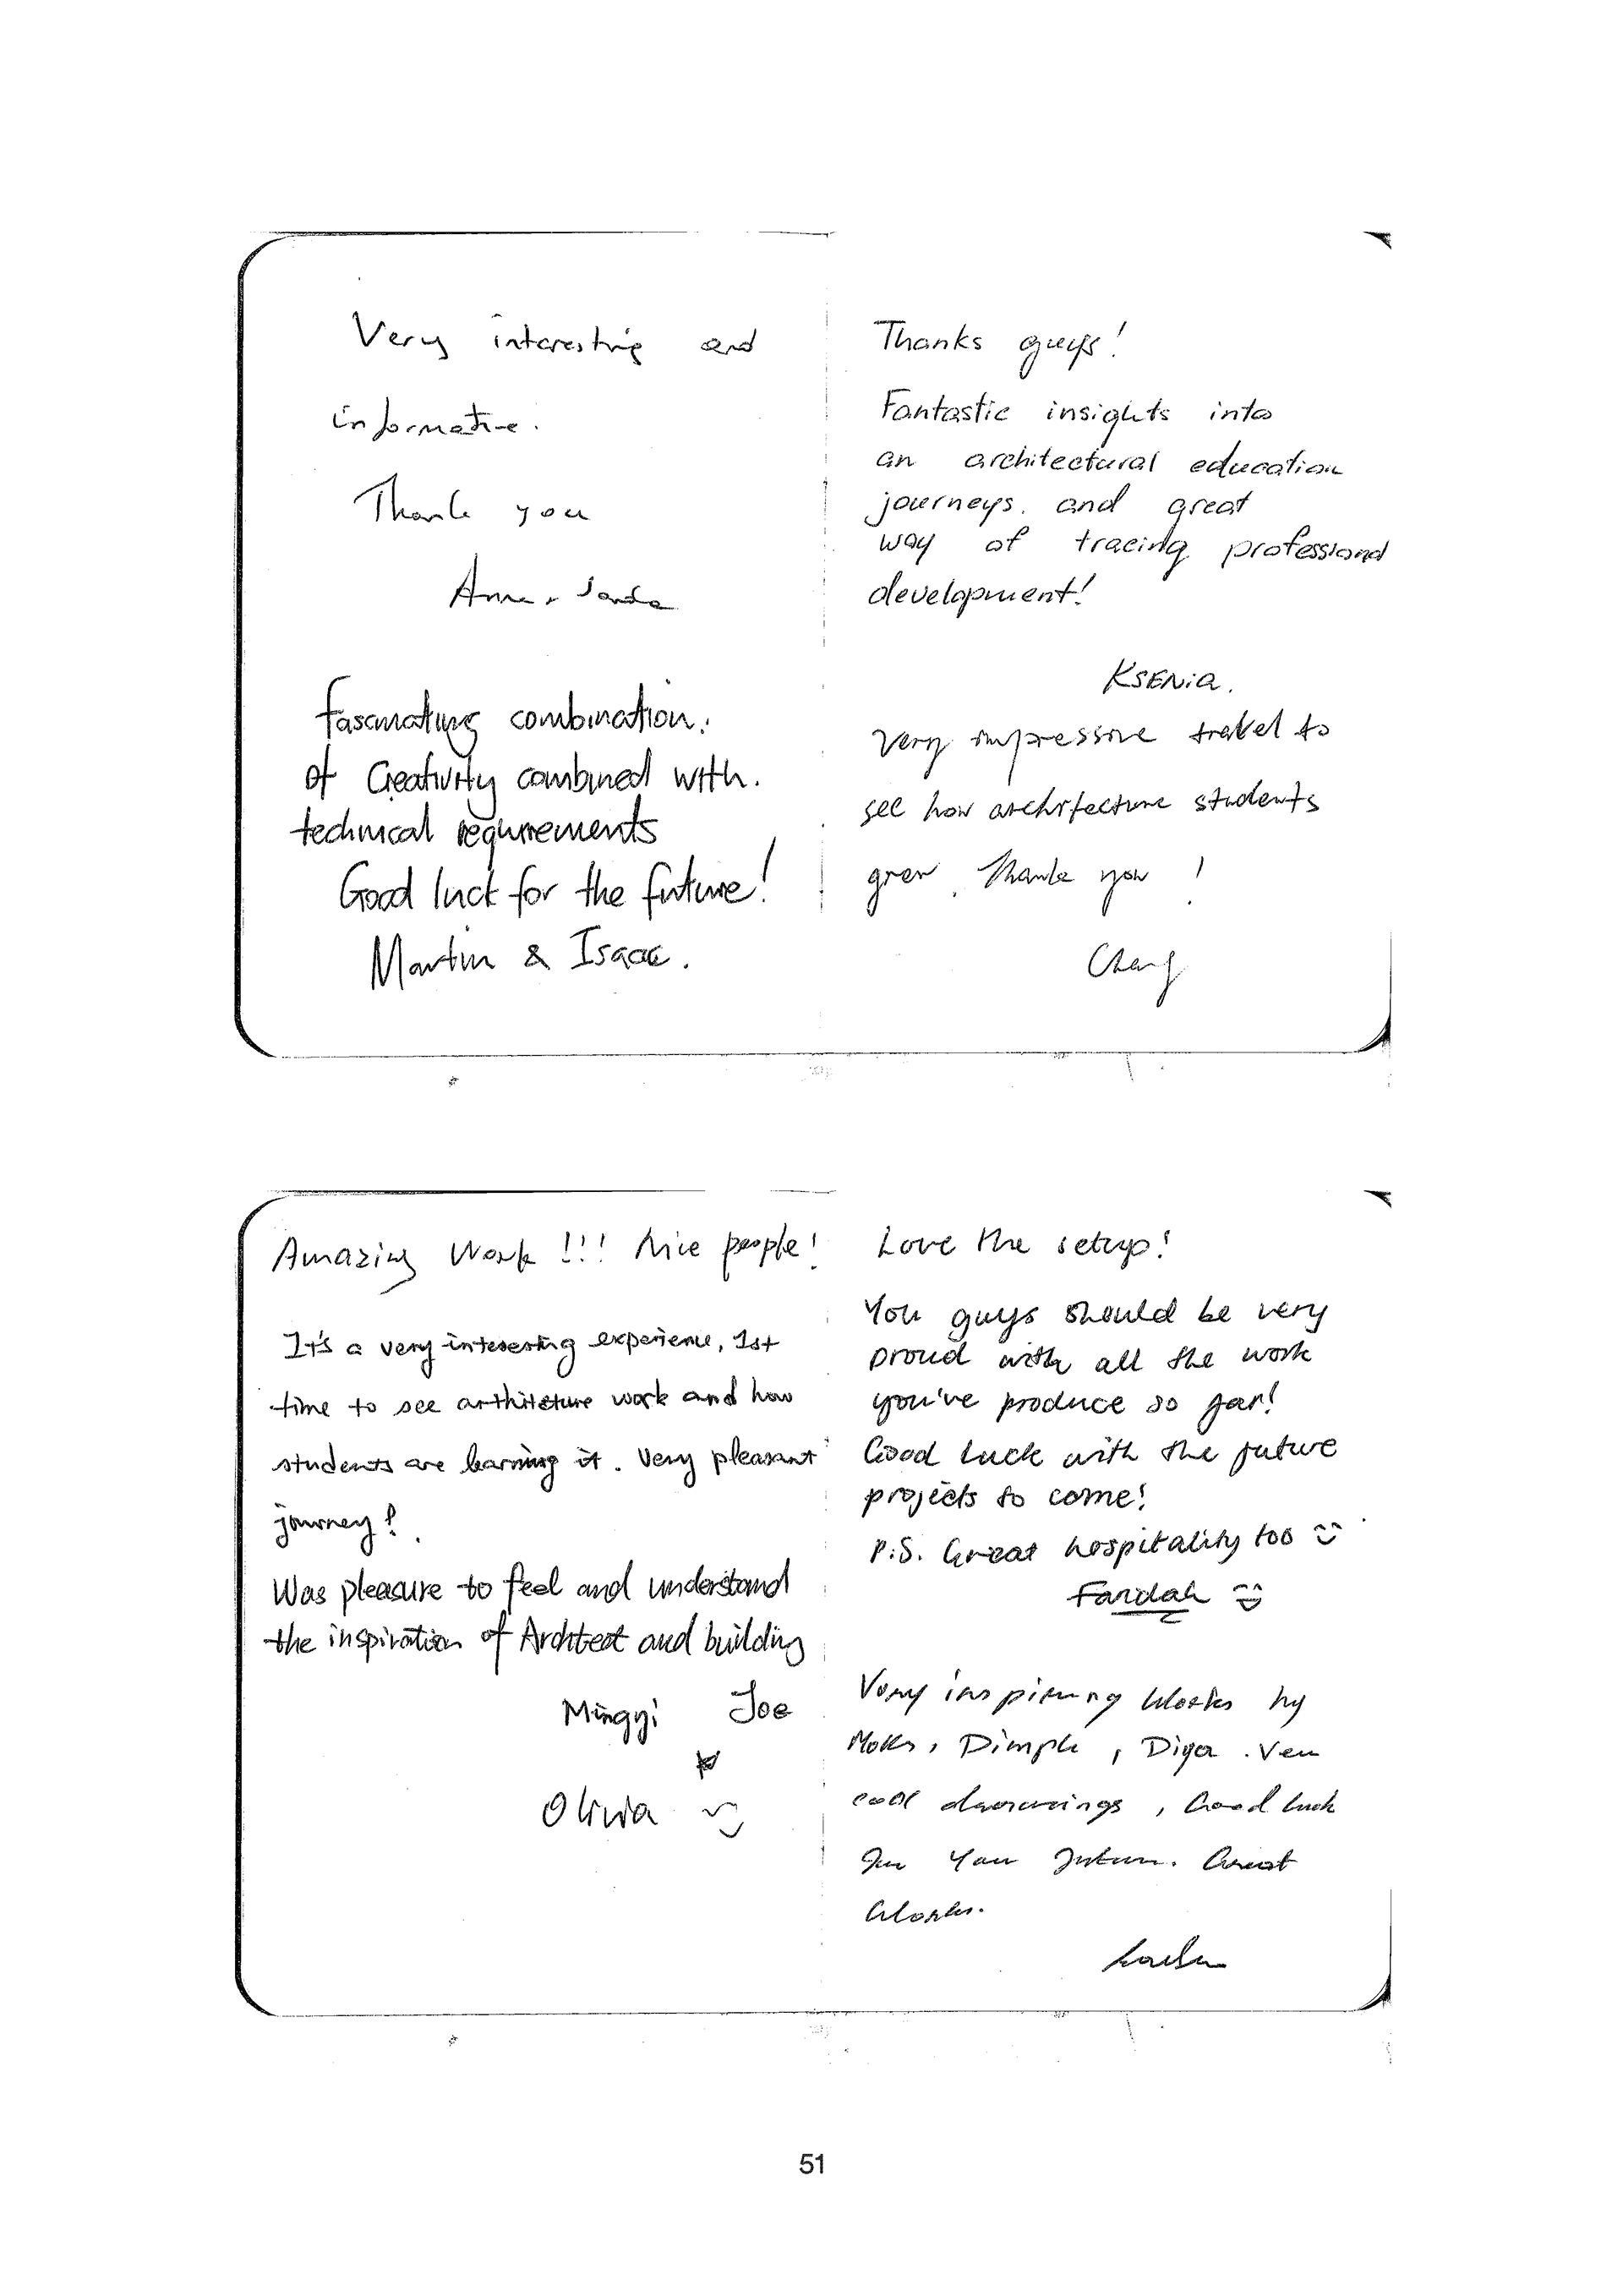 Very interesting and
informative.
Thank you
Fascinating combination.
of Creativity combined with.
technical requirements
Good luck for the future!
Martin & Isaac.
Thanks guys!
Fantastic insights into
an architectural education
journeys. and great
way of tracing professional
development!
KSENiA.
Very impressive travel to
see how architecture students
grow. Thank you !
Amazing Work !!! Nice people!
It's a very interesting experience, 1st
time to see architecture work and how
students are learning it. Very pleasant
journey!
Was pleasure to feel and understand
the inspiration of Architect and building
Mingyi Joe
Olivia
Love the setup!
You guys should be very
proud with all the work
you've produce so far!
Good luck with the future
projects to come!
P.S. Great hospitality too
Faridah
Very inspiring works by
Dimple, Diya.
cool drawings, Good luck
for your future. Great
works.
51